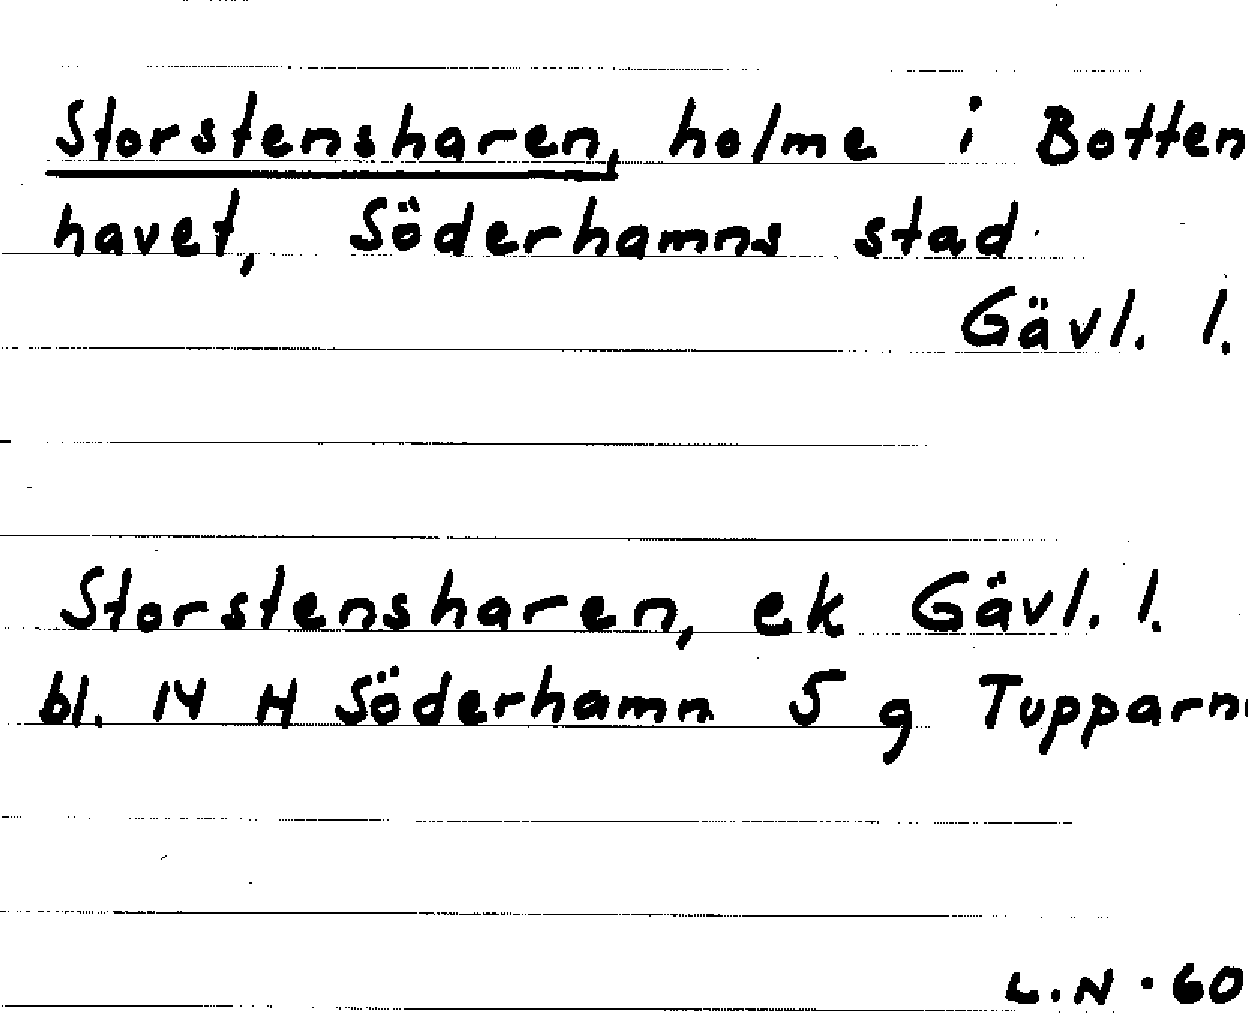 Storstensharen, holme i Botten
havet, Söderhamns stad
Gävl. l.
Storstensharen, ek Gävl. l.
bl. 14 H Söderhamn 5 g Tupparn
L.N. 60